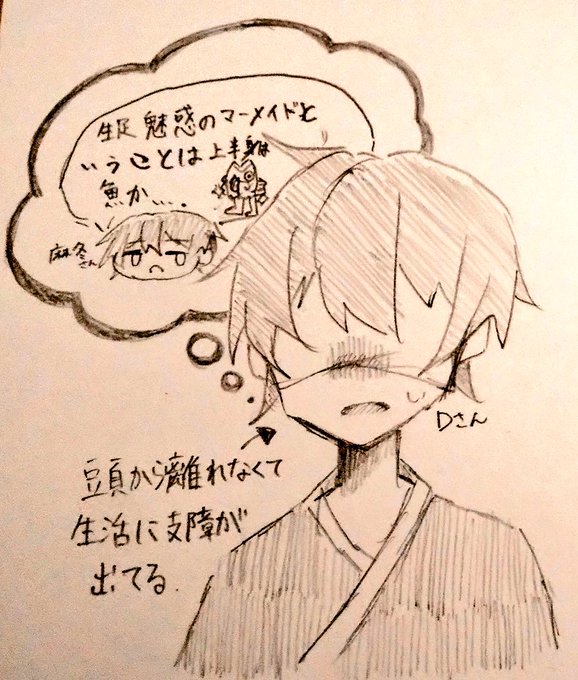 生足魅惑のマーメイドと
いうことは上半身は
魚か….
麻冬さん
Dさん
頭から離れなくて
生活に支障が
出てる.